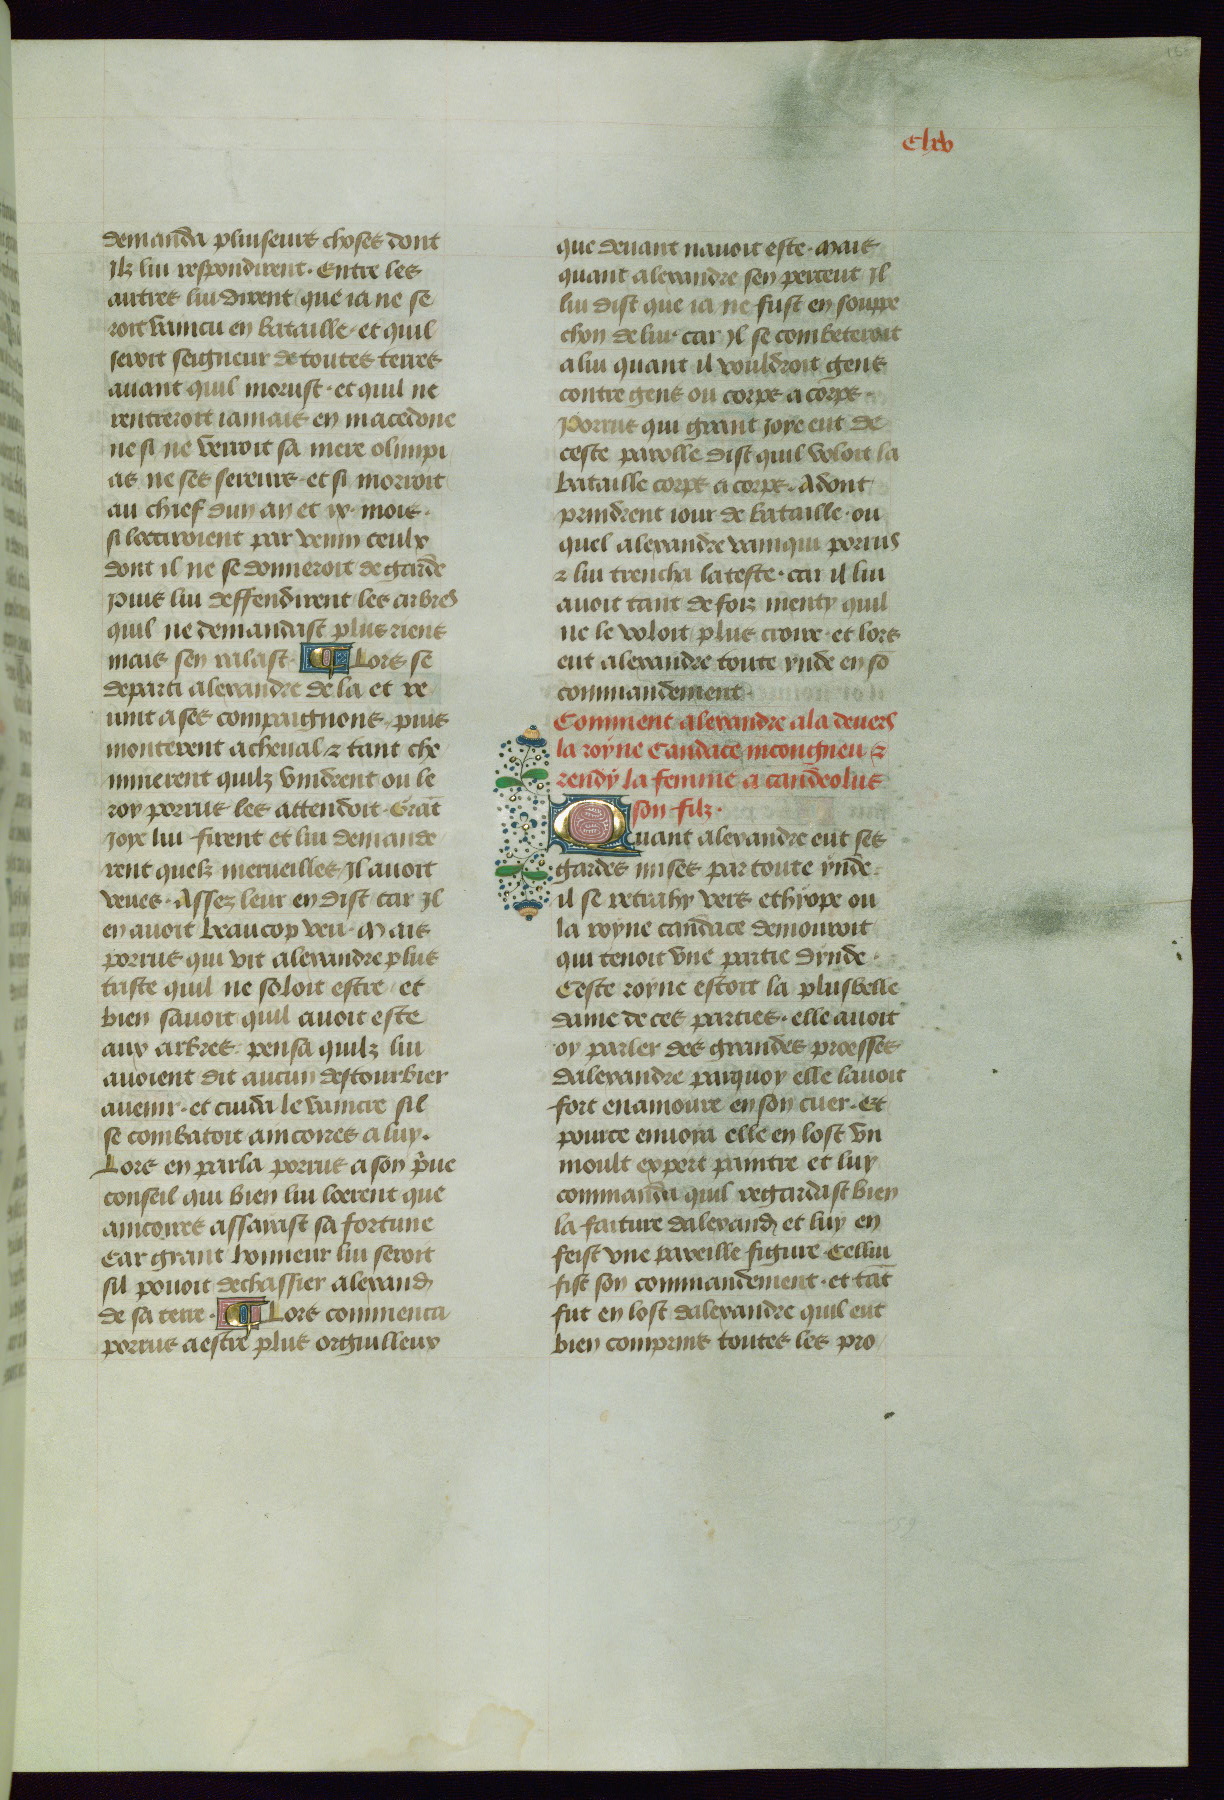 Clxv
demanda pluiseurs choses dont
Ilz lui respondirent. Entre les
autres lui dirent que ia ne se
roit vaincu en bataille. et quil
seroit seigneur de toutes terres
auant quil morust. et quil ne
rentreroit iamais en macedone
ne si ne verroit sa mere olimpi
as ne ses sereurs. et si morroit
au chief dun an et ix. mois.
si locciroient par venin ceulx
dont il ne se donneroit de garde
Puis lui deffendirent les arbres
quil ne demandast plus riens
mais sen ralast. Lors se
departi alexandre de la et re
uint a ses compaignons. puis
monterent a cheual & tant che
minerent quilz vindrent ou le
roy porrus les attendoit. Grāt
Joye lui firent et lui demande
rent quelz merueilles Il auoit
veues. Assez leur en dist car Il
en auoit beaucop veu. Mais
porrus qui vit alexandre plus
triste quil ne soloit estre et
bien sauoit quil auoit este
aux arbres. pensa quilz lui
auoient dit aucun destourbier
auenir. et cuida le vaincre sil
se combatoit aincores a luy.
Lors en parla porrus a son p̄ue
conseil qui bien lui loerent que
aincoires assaiast sa fortune
Car grant honneur lui seroit
sil pouoit dechassier alexand
de sa terre. Lors commenca
porrus a estre plus orguilleux
que deuant nauoit este. Mais
quant alexandre sen perceut Il
lui dist que ia ne fust en souppe
chon de lui. car Il se combeteroit
a lui quant il vouldroit gens
contre gens ou corps a corps.
Porrus qui grant Joye eut de
ceste parolle dist quil voloit la
bataille corps a corps. Adont
prindrent iour de bataille. ou
quel alexandre vainqui porrus
& lui trencha la teste. car il lui
auoit tant de foiz menty quil
ne le voloit plus croire. et lors
eut alexandre toute ynde en sō
commandement.
Comment alexandre ala deuers
la royne Candace incongneu &
rendy la femme a candeolus
son filz.
Quant alexandre eut ses
gardes mises par toute ynde.
il se retrahy vers ethyope ou
la royne candace demouroit
qui tenoit vne partie dynde.
Ceste royne estoit la plusbelle
dame de ces parties. elle auoit
oy parler des grandes proesses
dalexandre parquoy elle lauoit
fort enamoure en son cuer. Et
pource enuoia elle en lost vn
moult expert paintre et luy
commanda quil regardast bien
la faiture dalexand et luy en
feist vne pareille figure. Cellui
fist son commandement. et tāt
fut en lost dalexandre quil eut
bien comprins toutes les pro